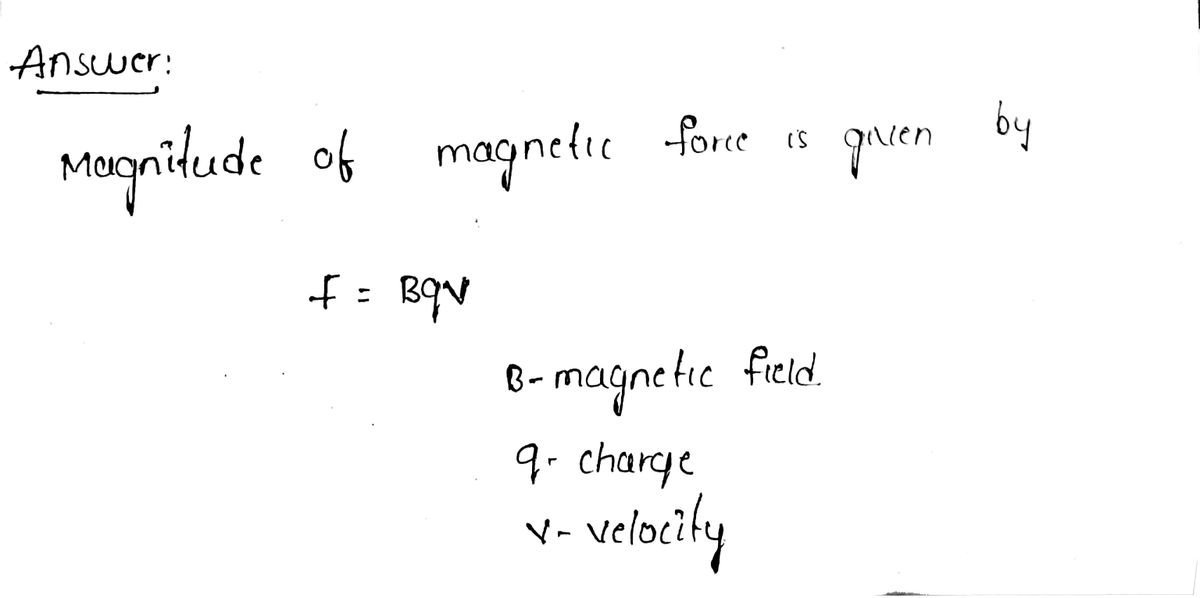 Answer:
Magnitude of magnetic force is given by
f = Bqv
B- magnetic field.
q- charge
v- velocity